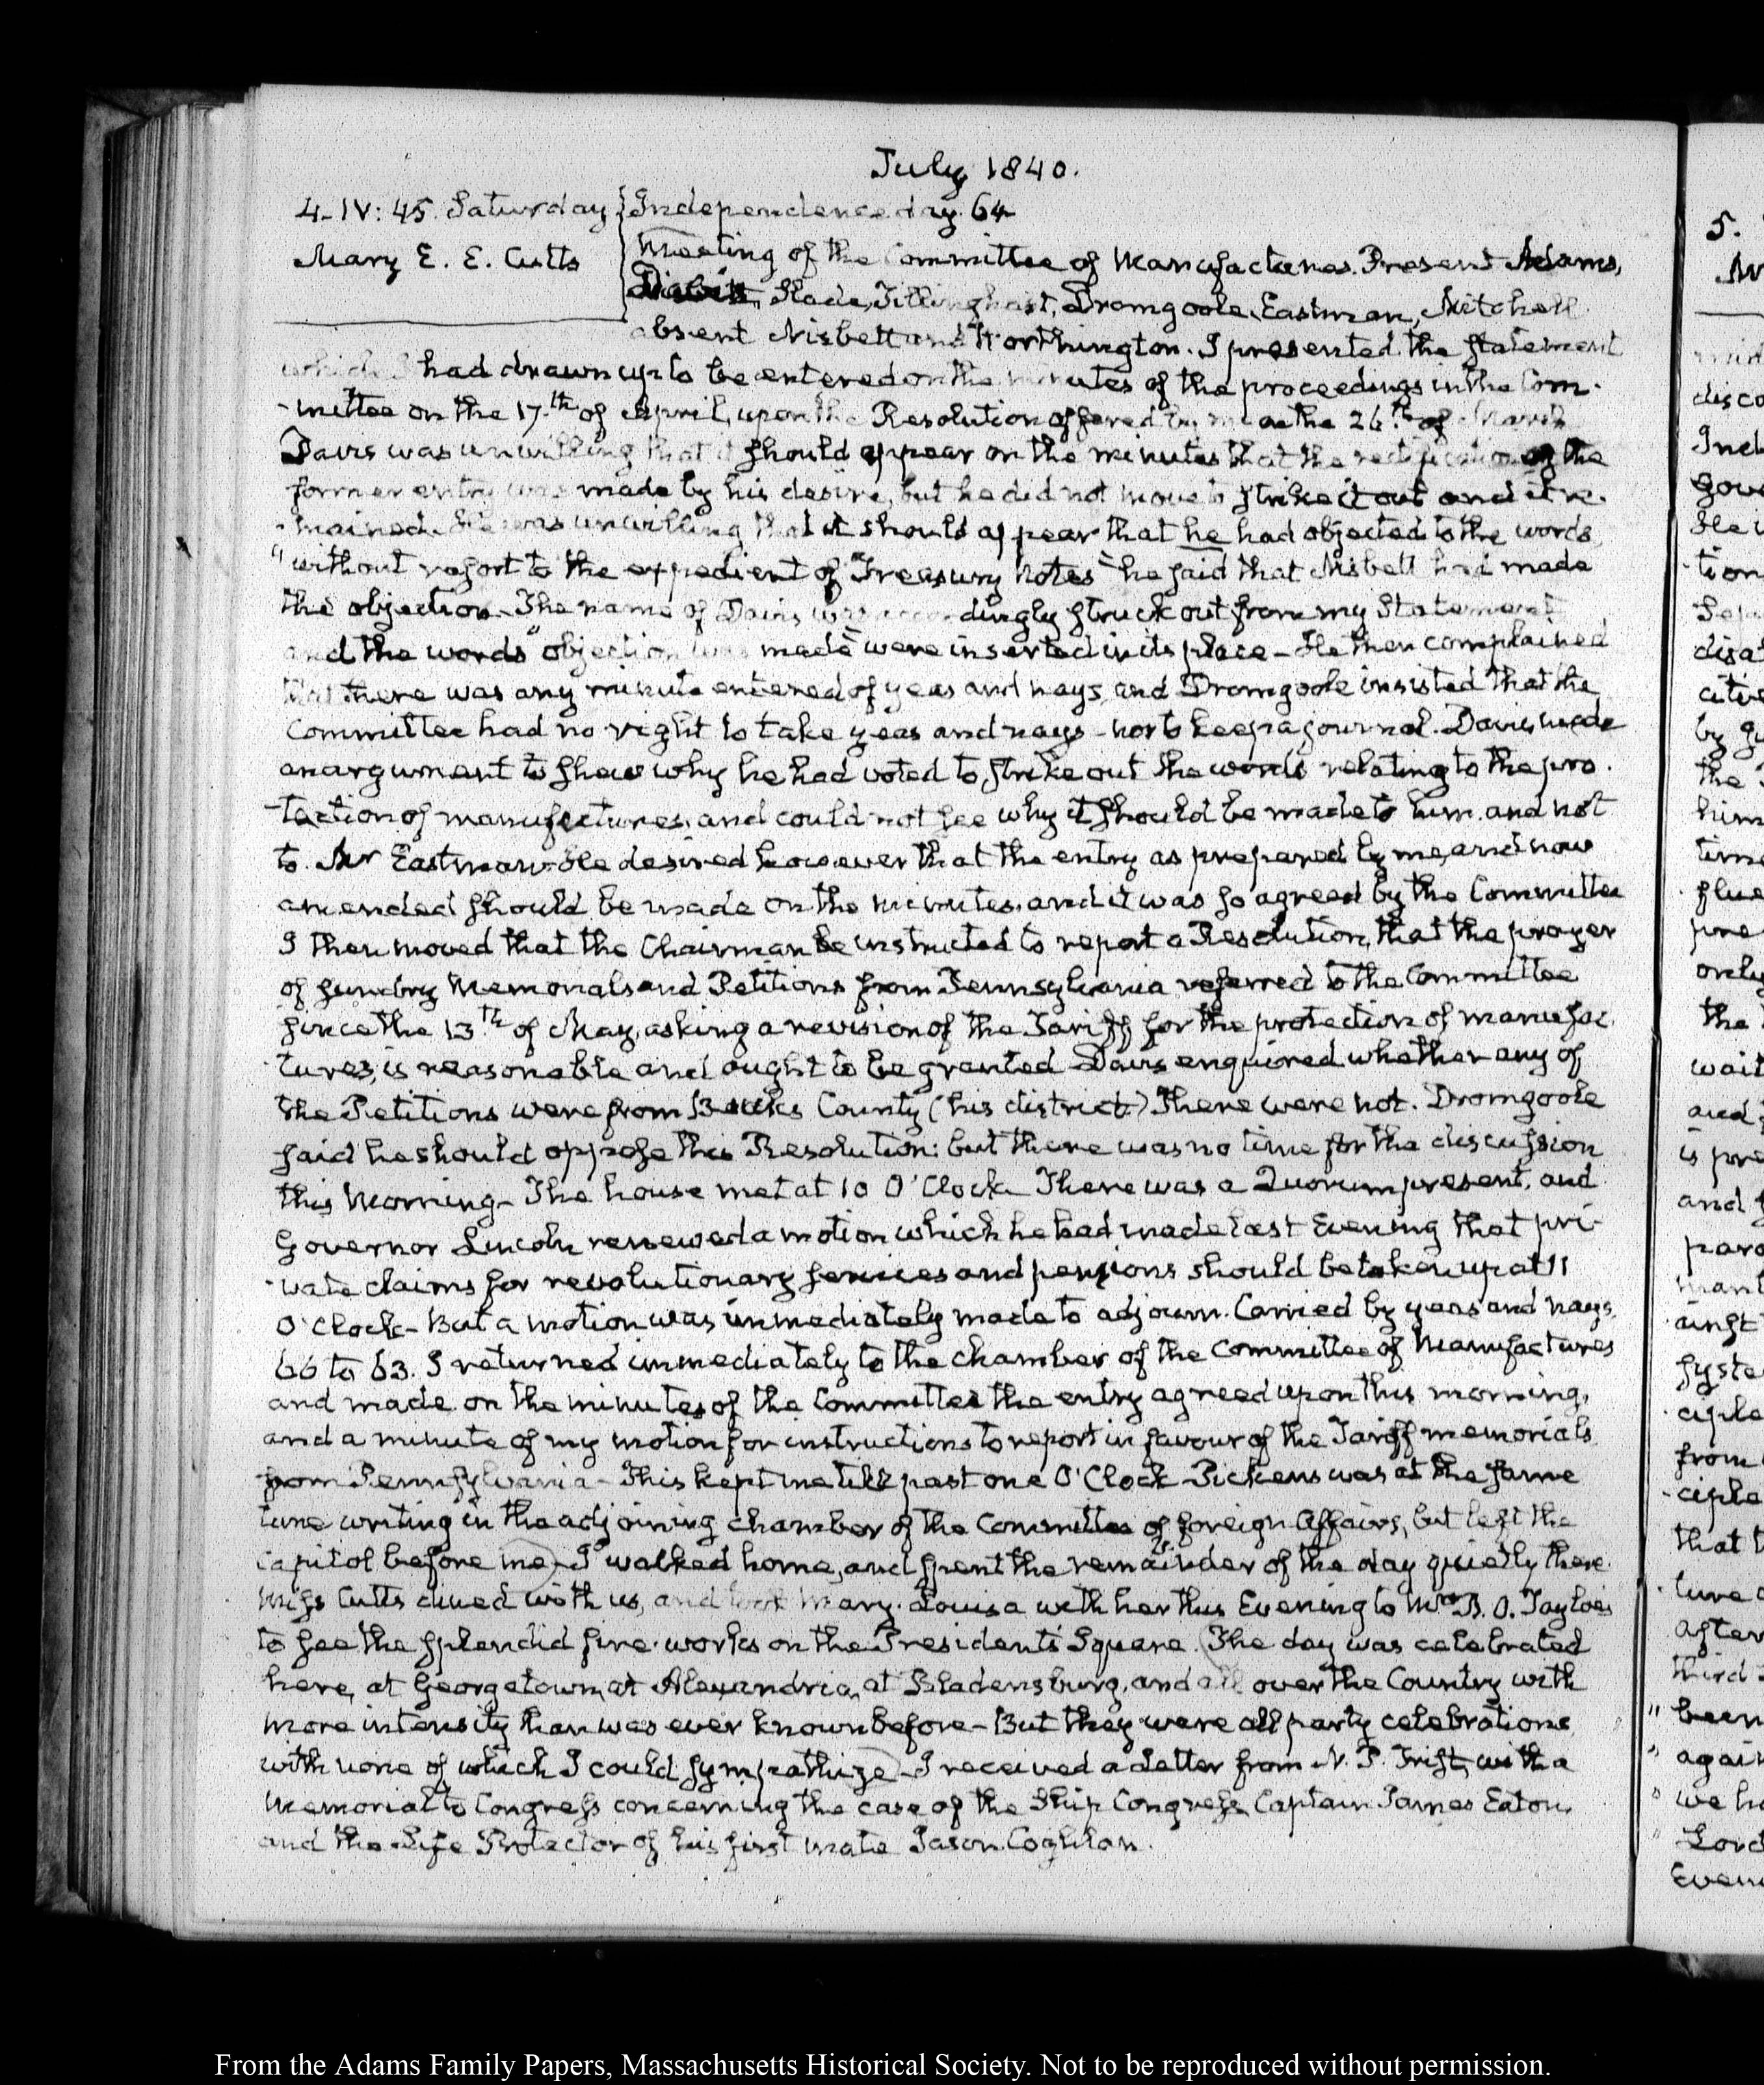 July 1840.
4. IV: 45. Saturday
Mary E. E. Cutts
Independence day. 64
Meeting of the Committee of Manufactures. Present Adams,
Slade, Tillinghast, Dromgoole, Eastman, Mitchell
absent Nisbett and Worthington. I presented the statement
which I had drawn up to be entered on the minutes of the proceedings in the Com-
-mittee on the 17.th of April, upon the Resolution offered by me on the 26.th of March
Davis was unwilling that it should appear on the minutes that the rectification of the
former entry was made by his desire, but he did not move to strike it out and it re-
-mained. He was unwilling that it should appear that he had objected to the words
"without resort to the expedient of Treasury Notes" he said that Nisbett had made
the objection. The name of Davis was accordingly struck out from my Statement
and the words "objection was made" were inserted in its place - He then complained
that there was any minute entered of yeas and nays, and Dromgoole insisted that the
Committee had no right to take yeas and nays - nor to keep a journal. Davis made
an argument to shew why he had voted to strike out the words relating to the pro-
-tection of manufactures, and could not see why it should be made to him, and not
to Mr Eastman. He desired however that the entry as prepared by me, and now
amended should be made on the minutes, and it was so agreed by the Committee
I then moved that the Chairman be instructed to report a Resolution, that the prayer
of sundry Memorials and Petitions from Pennsylvania referred to the Committee
since the 13th of May, asking a revision of the Tariff for the protection of manufac-
-tures, is reasonable and ought to be granted Davis enquired whether any of
the Petitions were from Bucks County (his district) There were not. Dromgoole
said he should oppose this Resolution: but there was no time for the discussion
this Morning - The house met at 10 O'Clock There was a Quorum present, and
Governor Lincoln renewed a motion which he had made last Evening that pri-
-vate claims for revolutionary services and pensions should be taken up at 11
O'Clock - But a motion was immediately made to adjourn. Carried by yeas and nays,
66 to 63. I returned immediately to the chamber of the Committee of Manufactures
and made on the minutes of the Committee the entry agreed upon this morning,
and a minute of my motion for instructions to report in favour of the Tariff memorials
from Pennsylvania - This kept me till past one O'Clock Pickens was at the same
time writing in the adjoining chamber of the Committee of foreign Affairs, but left the
Capitol before me - I walked home, and spent the remainder of the day quietly there.
Miss Cutts dined with us, and took Mary-Louisa with her this Evening to Mrs B. O. Tayloe's
to see the splendid fire-works on the President's Square. The day was celebrated
here, at Georgetown, at Alexandria, at Bladensburg, and all over the Country with
more intensity than was ever known before - But they were all party celebrations
with none of which I could sympathize - I received a Letter from N. P. Trist, with a
Memorial to Congress concerning the case of the Ship Congress, Captain James Eaton,
and the Life Protector of his first mate Jason Coghlan.
From the Adams Family Papers, Massachusetts Historical Society. Not to be reproduced without permission.